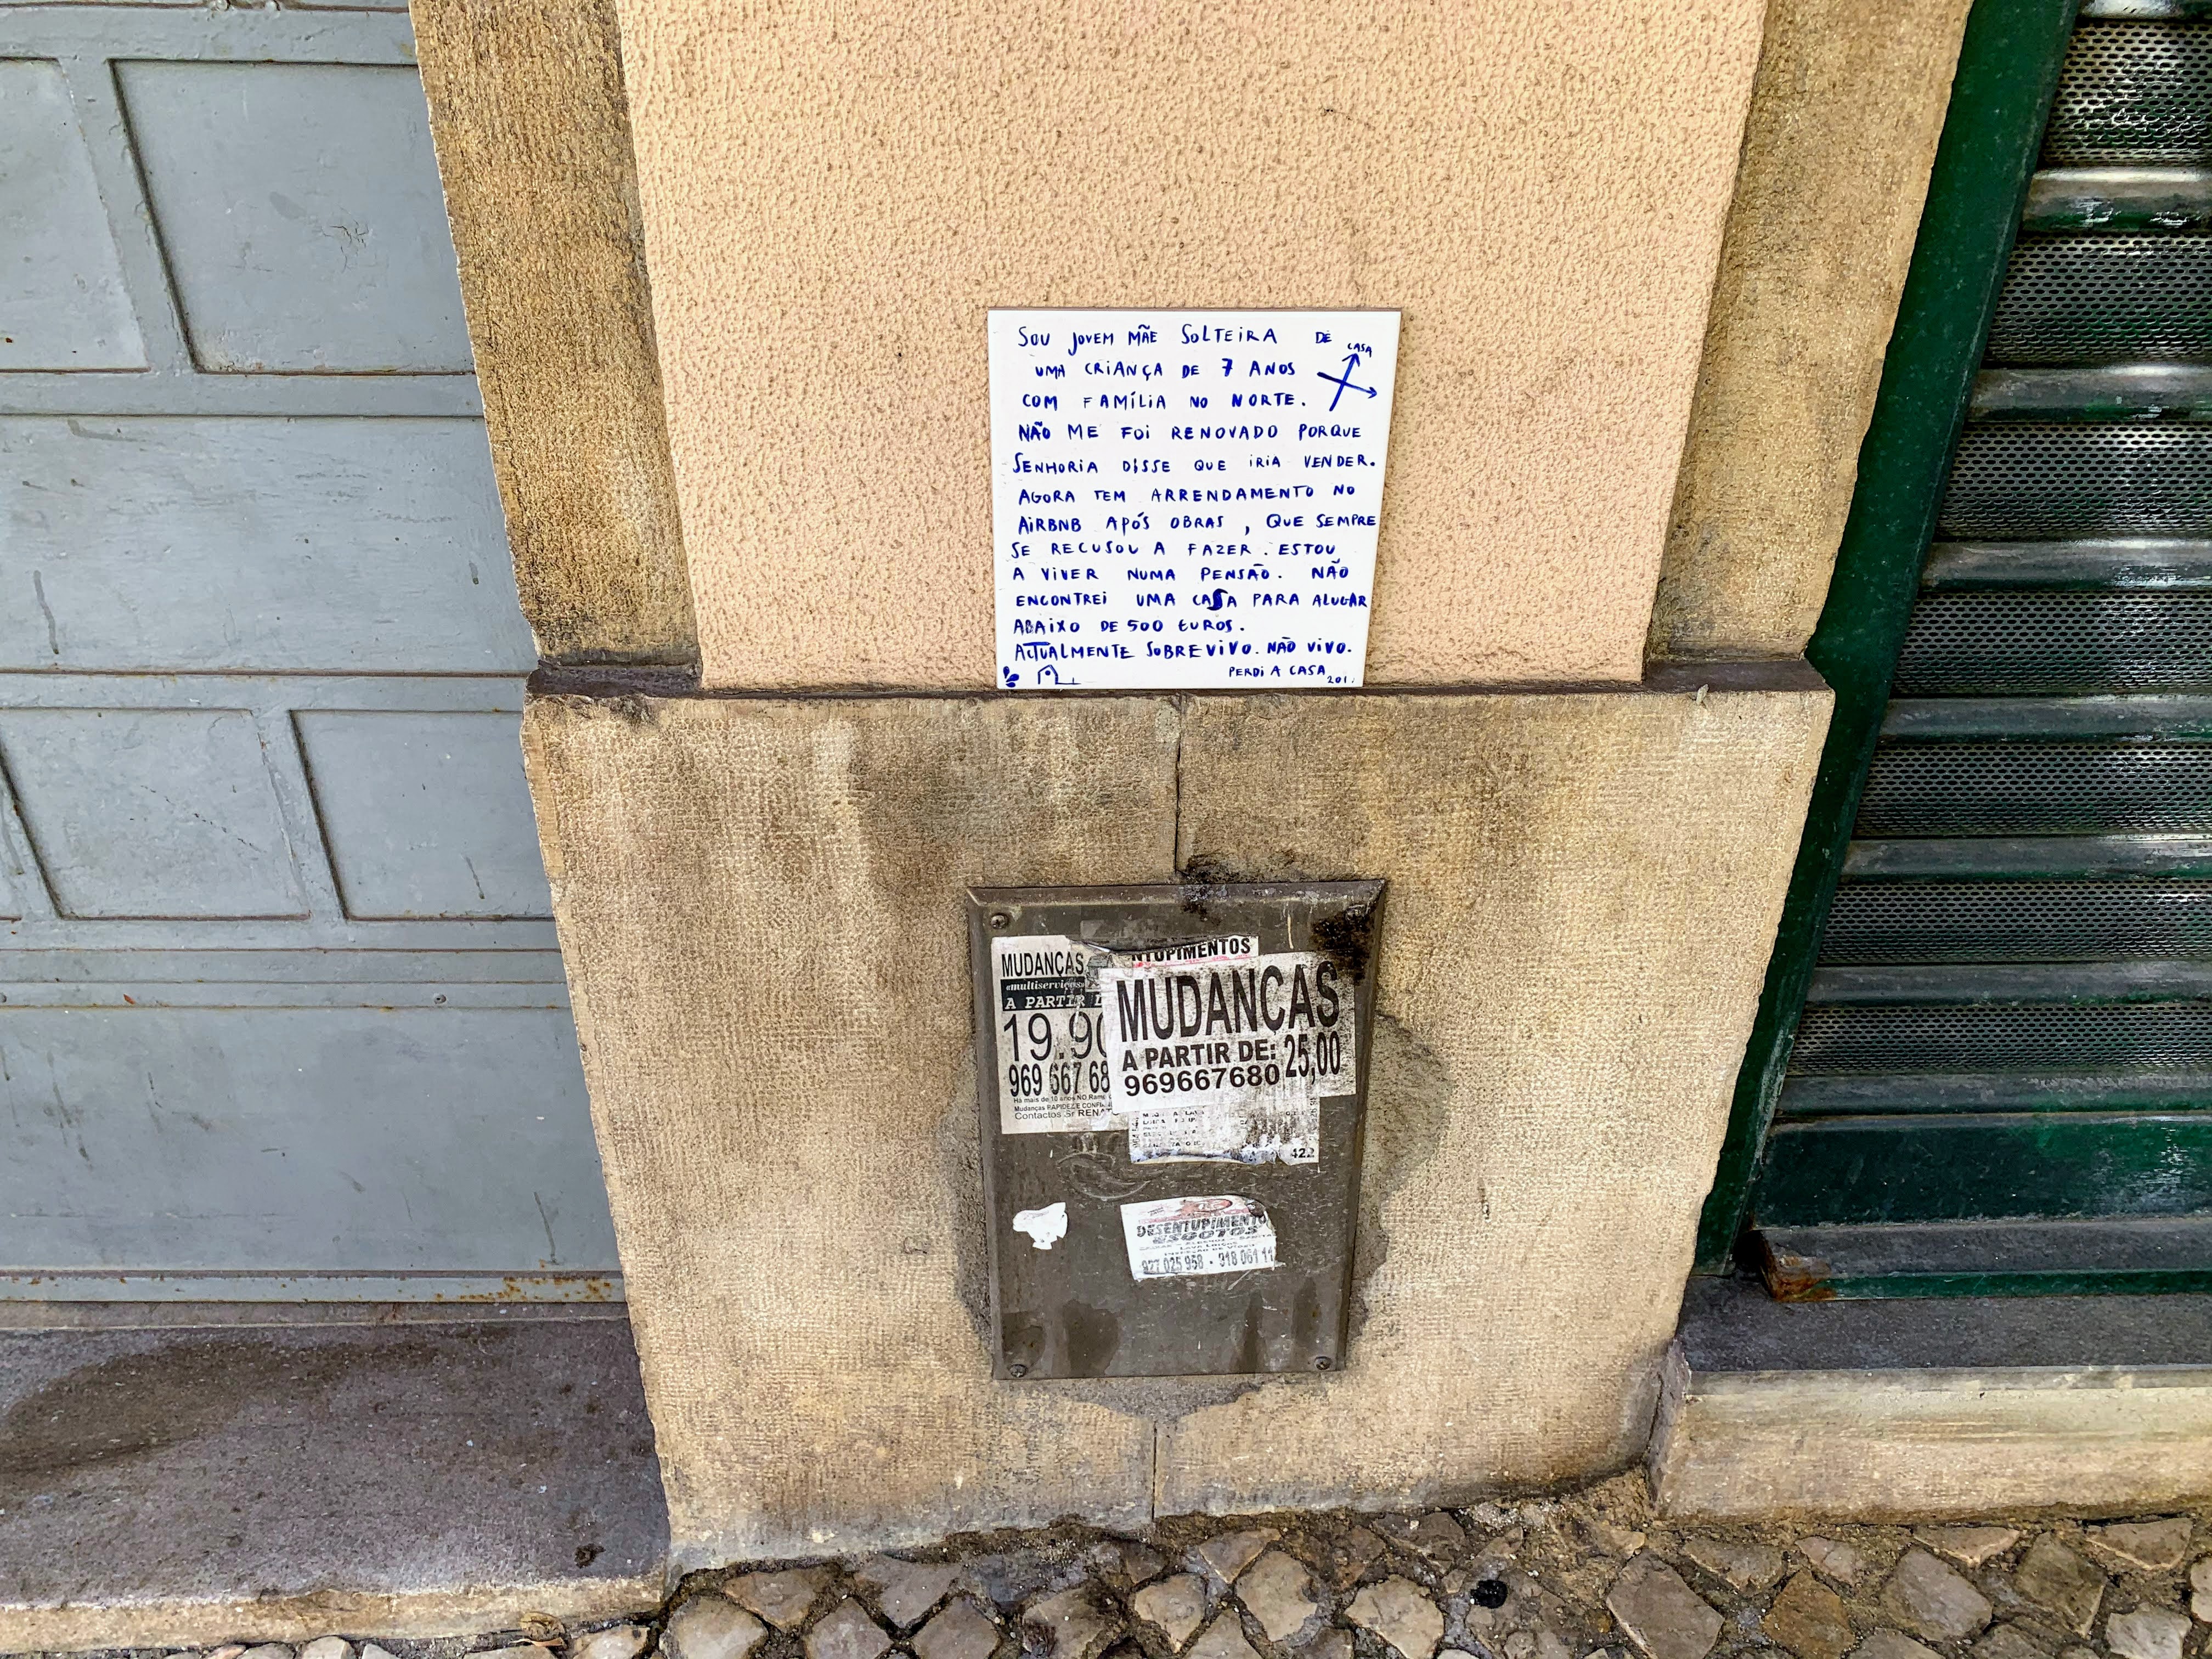 SOU JOVEM MÃE SOLTEIRA DE
UMA CRIANÇA DE 7 ANOS
CASA
COM FAMÍLIA NO NORTE.
NÃO ME FOI RENOVADO PORQUE
SENHORIA DISSE QUE IRIA VENDER.
AGORA TEM ARRENDAMENTO NO
AIRBNB APÓS OBRAS, QUE SEMPRE
SE RECUSOU A FAZER. ESTOU
A VIVER NUMA PENSÃO. NÃO
ENCONTREI UMA CASA PARA ALUGAR
ABAIXO DE 500 EUROS.
ACTUALMENTE SOBREVIVO. NÃO VIVO.
PERDI A CASA
MUDANÇAS
«multiserviços»
A PARTIR
19.90
969 667 68
Há mais de 10 anos NO Ramo
Mudanças RAPIDEZ E
Contactos Sr RENAT
NTUPIMENTOS
MUDANÇAS
A PARTIR DE: 25,00
969667680
422
DESENTUPIMENTO
ESGOTOS
927 025 958 - 918 061 11